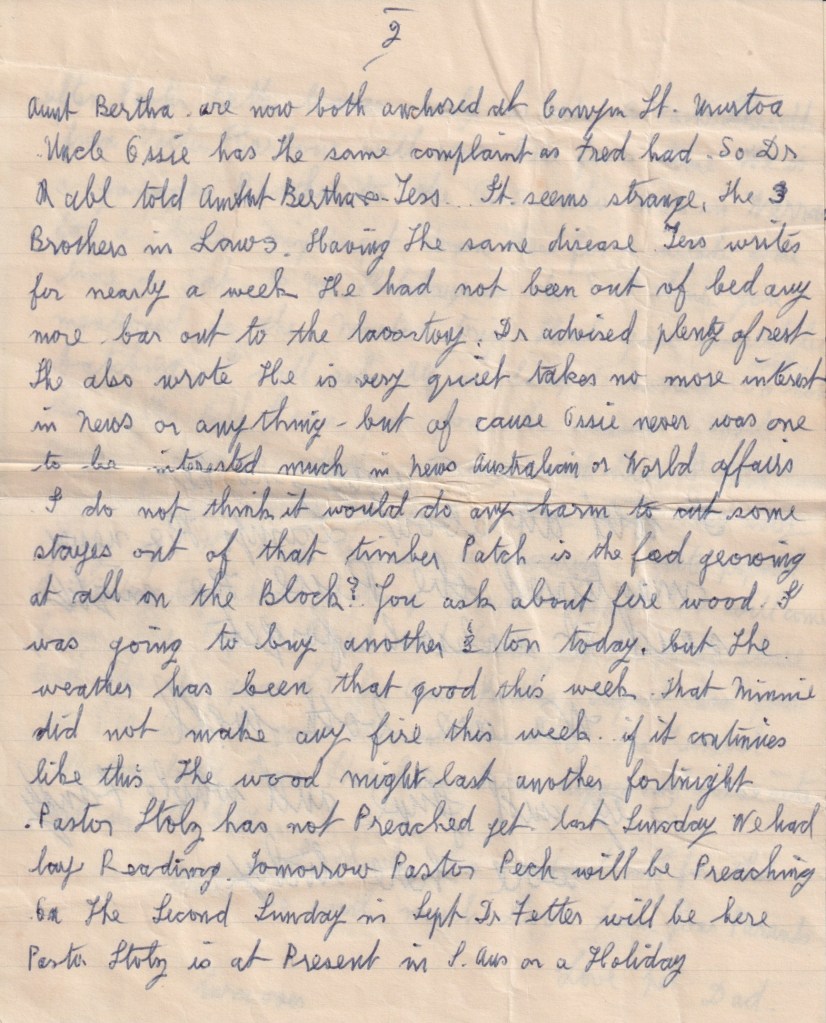 2
Aunt Bertha are now both anchored at Comyn St. Murtoa
Uncle Ossie has the same complaint as Fred had. So Dr
Rabl told Auntut Bertha & Tess. It seems strange, The 3
Brothers in Laws. Having The same disease Tess writes
for nearly a week He had not been out of bed any
more bar out to the lavortory. Dr adviced plenty of rest
She also wrote He is very quiet takes no more interest
in News or anything - but of cause Ossie never was one
to be intersted much in News Australian or World affairs
I do not think it would do any harm to cut some
stayes out of that timber Patch is the feed growing
at all on the Block? You ask about fire wood. I
was going to buy another ½ ton today. but The
weather has been that good this week. That Minnie
did not make any fire this week. if it continues
like this The wood might last another fortnight
. Pastor Stolz has not Preached yet. last Sunday We had
lay Reading. Tomorrow Pastor Pech will be Preaching
On The Second Sunday in Sept Dr Fetter will be here
Pastor Stolz is at Present in S. Aus on a Holiday